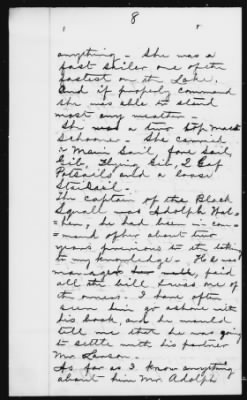 8
anything - She was a
fast sailer one of the
fastest on the Lake.
And if properly command
she was able to stand
most any weather -
She was a two top mast
Schooner. She carried
a Main Sail, fore Sail,
Gib, Flying Gib, 2 Gaf
Potsails and a loose
StaySail.
The captain of the Black
Squall was Adolph
he had been in com=
=mand of her about two
years previous to the
to my knowledge - He was
manager paid
all the bill & was one of
the owners. I have often
seen him go ashore with
his book, and he would
tell me that he was going
to settle with his partner
Mr. Larson.
As far as I know anything
about him Mr. Adolph